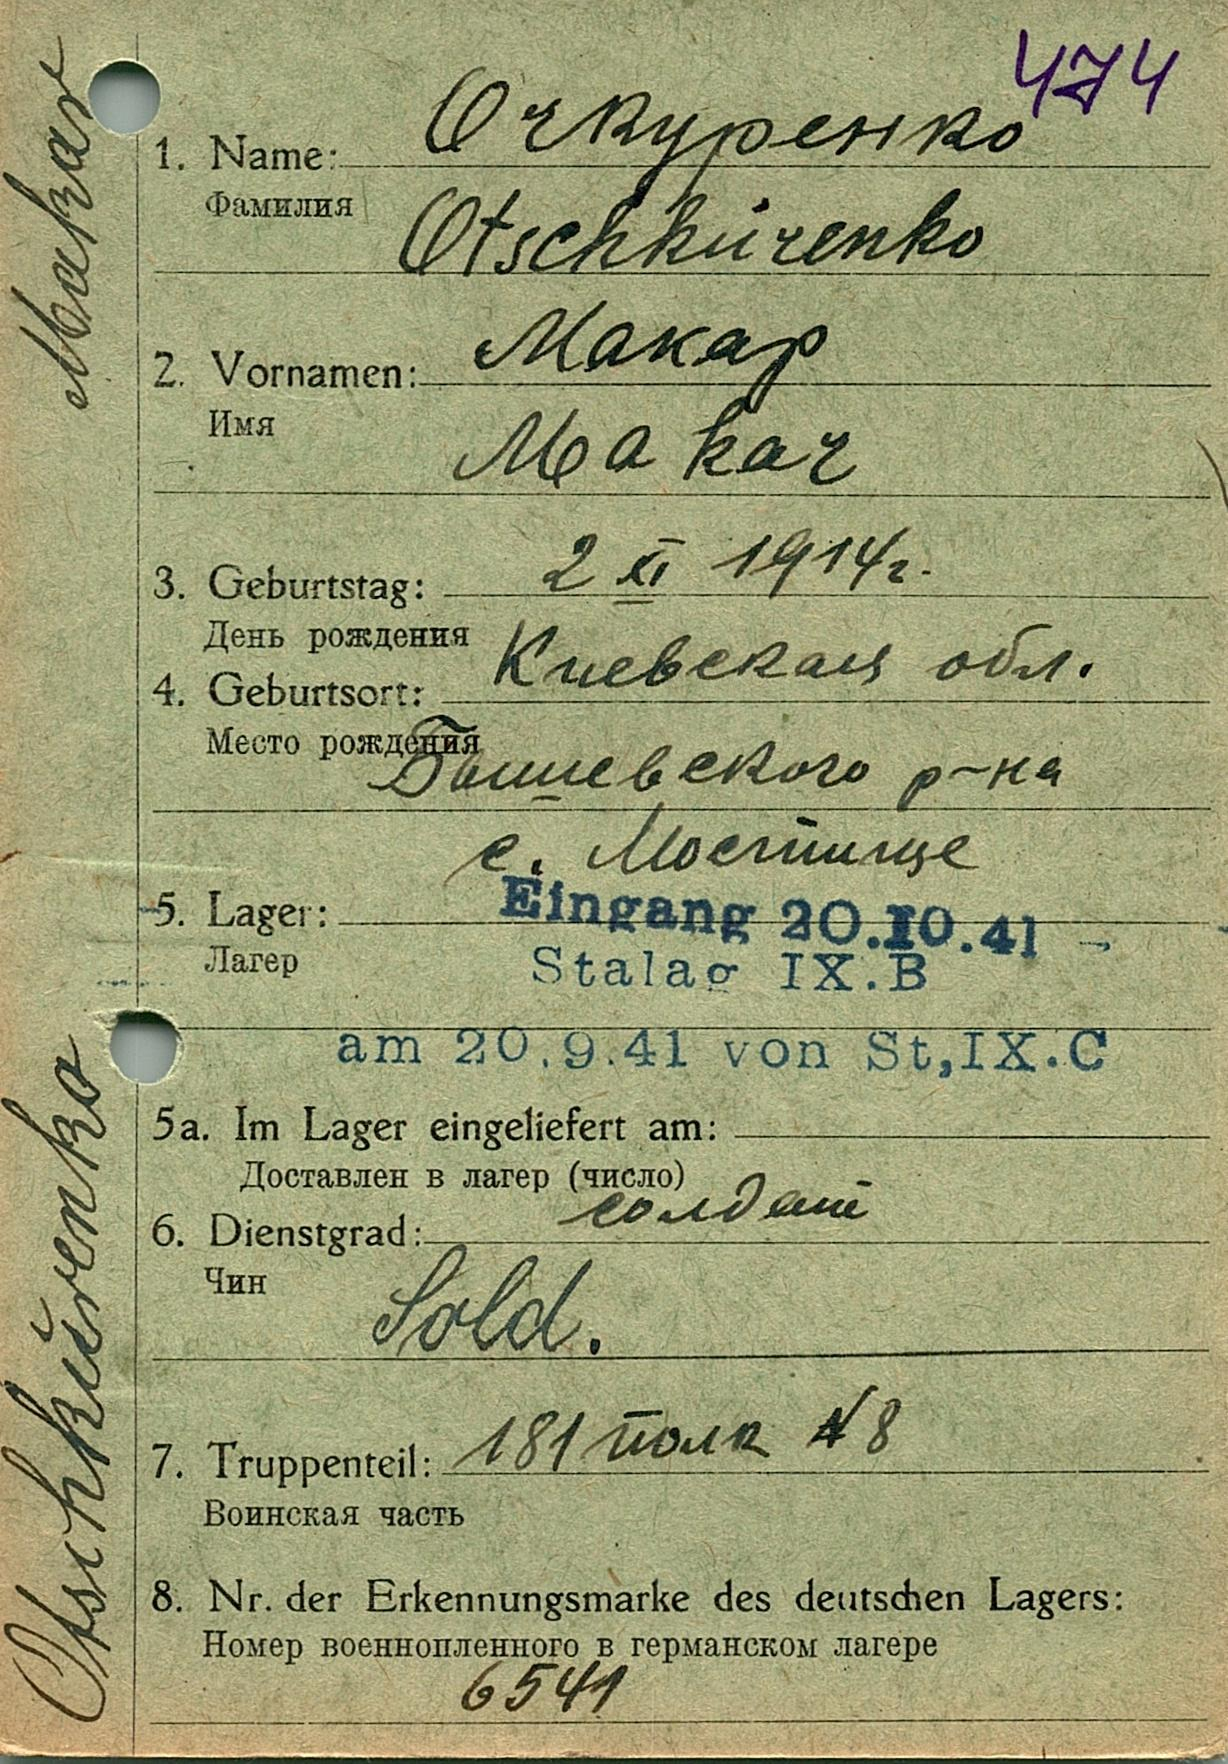 474
1. Name: Очкуренко
Фамилия
Otschkŭrenko
2. Vornamen: Макар
Имя
Makar
3. Geburtstag: 2 XI 1914г.
День рождения
4. Geburtsort: Киевская обл.
Место рождения
Бышевского р-на
с. Мостище
5. Lager: Eingang 20.10.41
Лагер
Stalag IX.B
am 20.9.41 von St,IX.C
5a. Im Lager eingeliefert am:
Доставлен в лагер (число)
6. Dienstgrad: солдат
Чин
Sold.
7. Truppenteil: 181 полк N8
Воинская часть
8. Nr. der Erkennungsmarke des deutschen Lagers:
Номер военнопленного в германском лагере
6541
Otschkŭrenko Makar